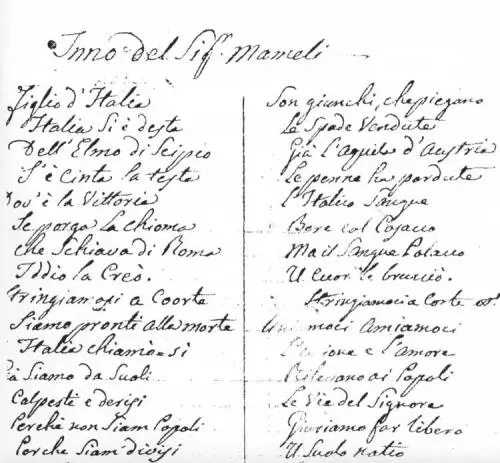 Inno del Sigr. Mameli
Figlio d'Italia
Italia Si è desta
Dell'Elmo di Scipio
S'è Cinta la testa
Dov'è la Vittoria
Se porga la chioma
che Schiava di Roma
Iddio la Creò.
Stringiamosi a Coorte
Siamo pronti alla morte
Italia chiamò=si
Già Siamo da Suoli
Calpesti e derisi
Perchè non Siam Popoli
Perche Siam divisi
Son giunchi, che piegano
Le Spade Vendute
Già l'Aquila d'Austria
Le penne ha perdute
l'Italico Sangue
Bere col Cosacco
Ma il Sangue Polacco
Il Cuor le bruciò.
Stringiamoci a Corte
Uniamoci Amiamoci
L'unione e l'amore
Rilevano ai Popoli
Le Vie del Signore
Giuriamo far libero
Il Suolo natio